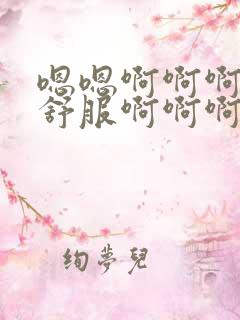 嗯嗯啊啊啊
舒服啊啊啊
绚梦儿